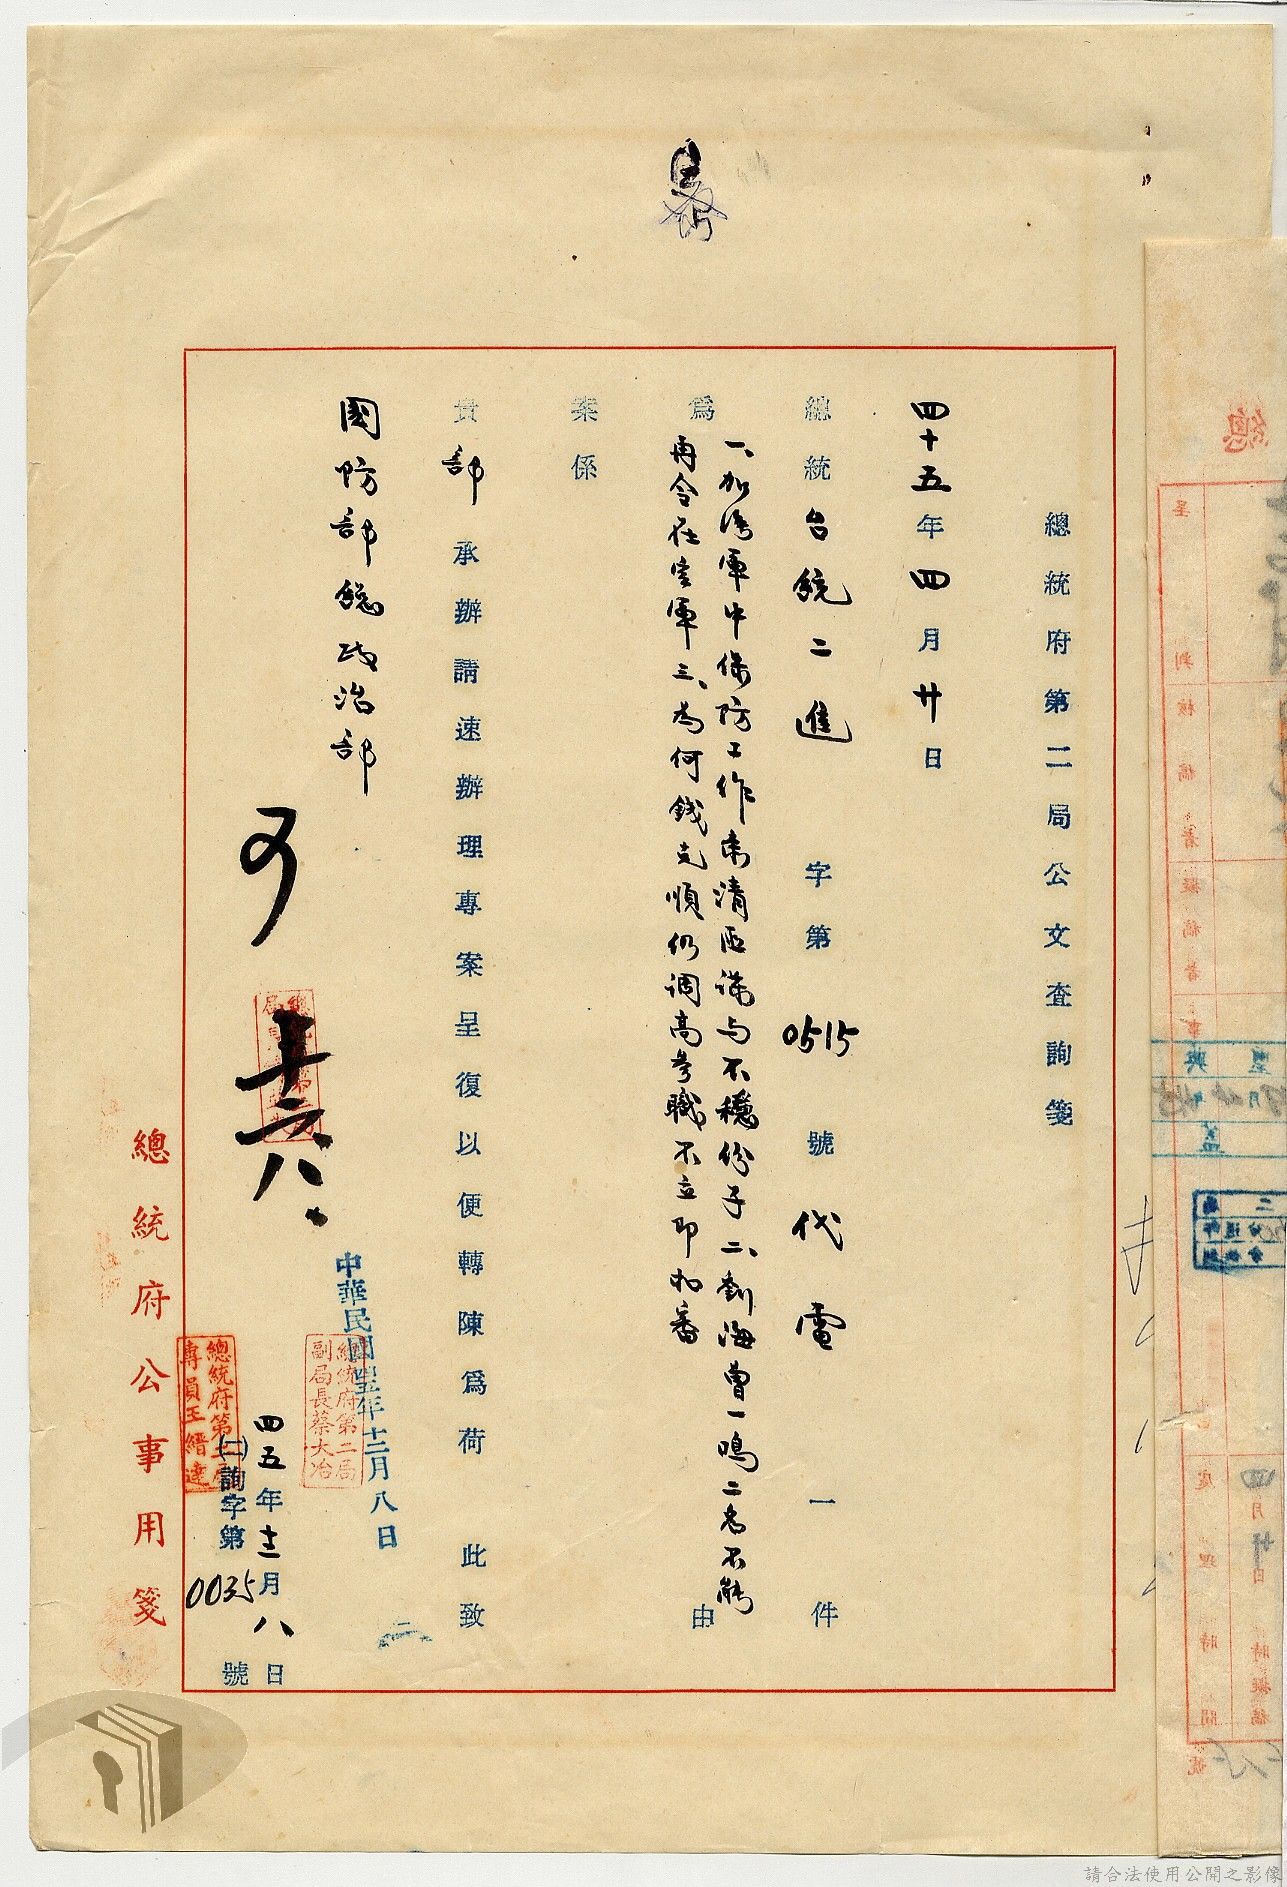 總統府第二局公文查詢箋
四十五年四月廿日
總統台統二進字第0515號代電一件
為一、加強軍中保防工作肅清匪諜與不穩份子二、劉海曹一鳴二名不能
再令在空軍三、為何錢克順仍調高參職不立即扣審由
案係
貴部承辦請速辦理專案呈復以便轉陳為荷 此致
國防部總政治部
中華民國四五年十二月八日
總統府第二局副局長蔡大冶
四五年十二月八日
(二)詢字第0035號
總統府第二局專員王縉達
總統府公事用箋
請合法使用公開之影像